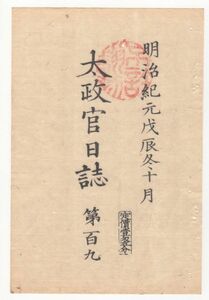 明治紀元戊辰冬十月
太政官日誌 第百九